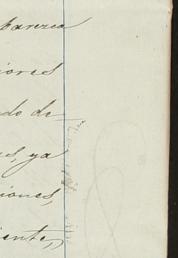 parezca
iores
do de
es, ya
iones,
iente,